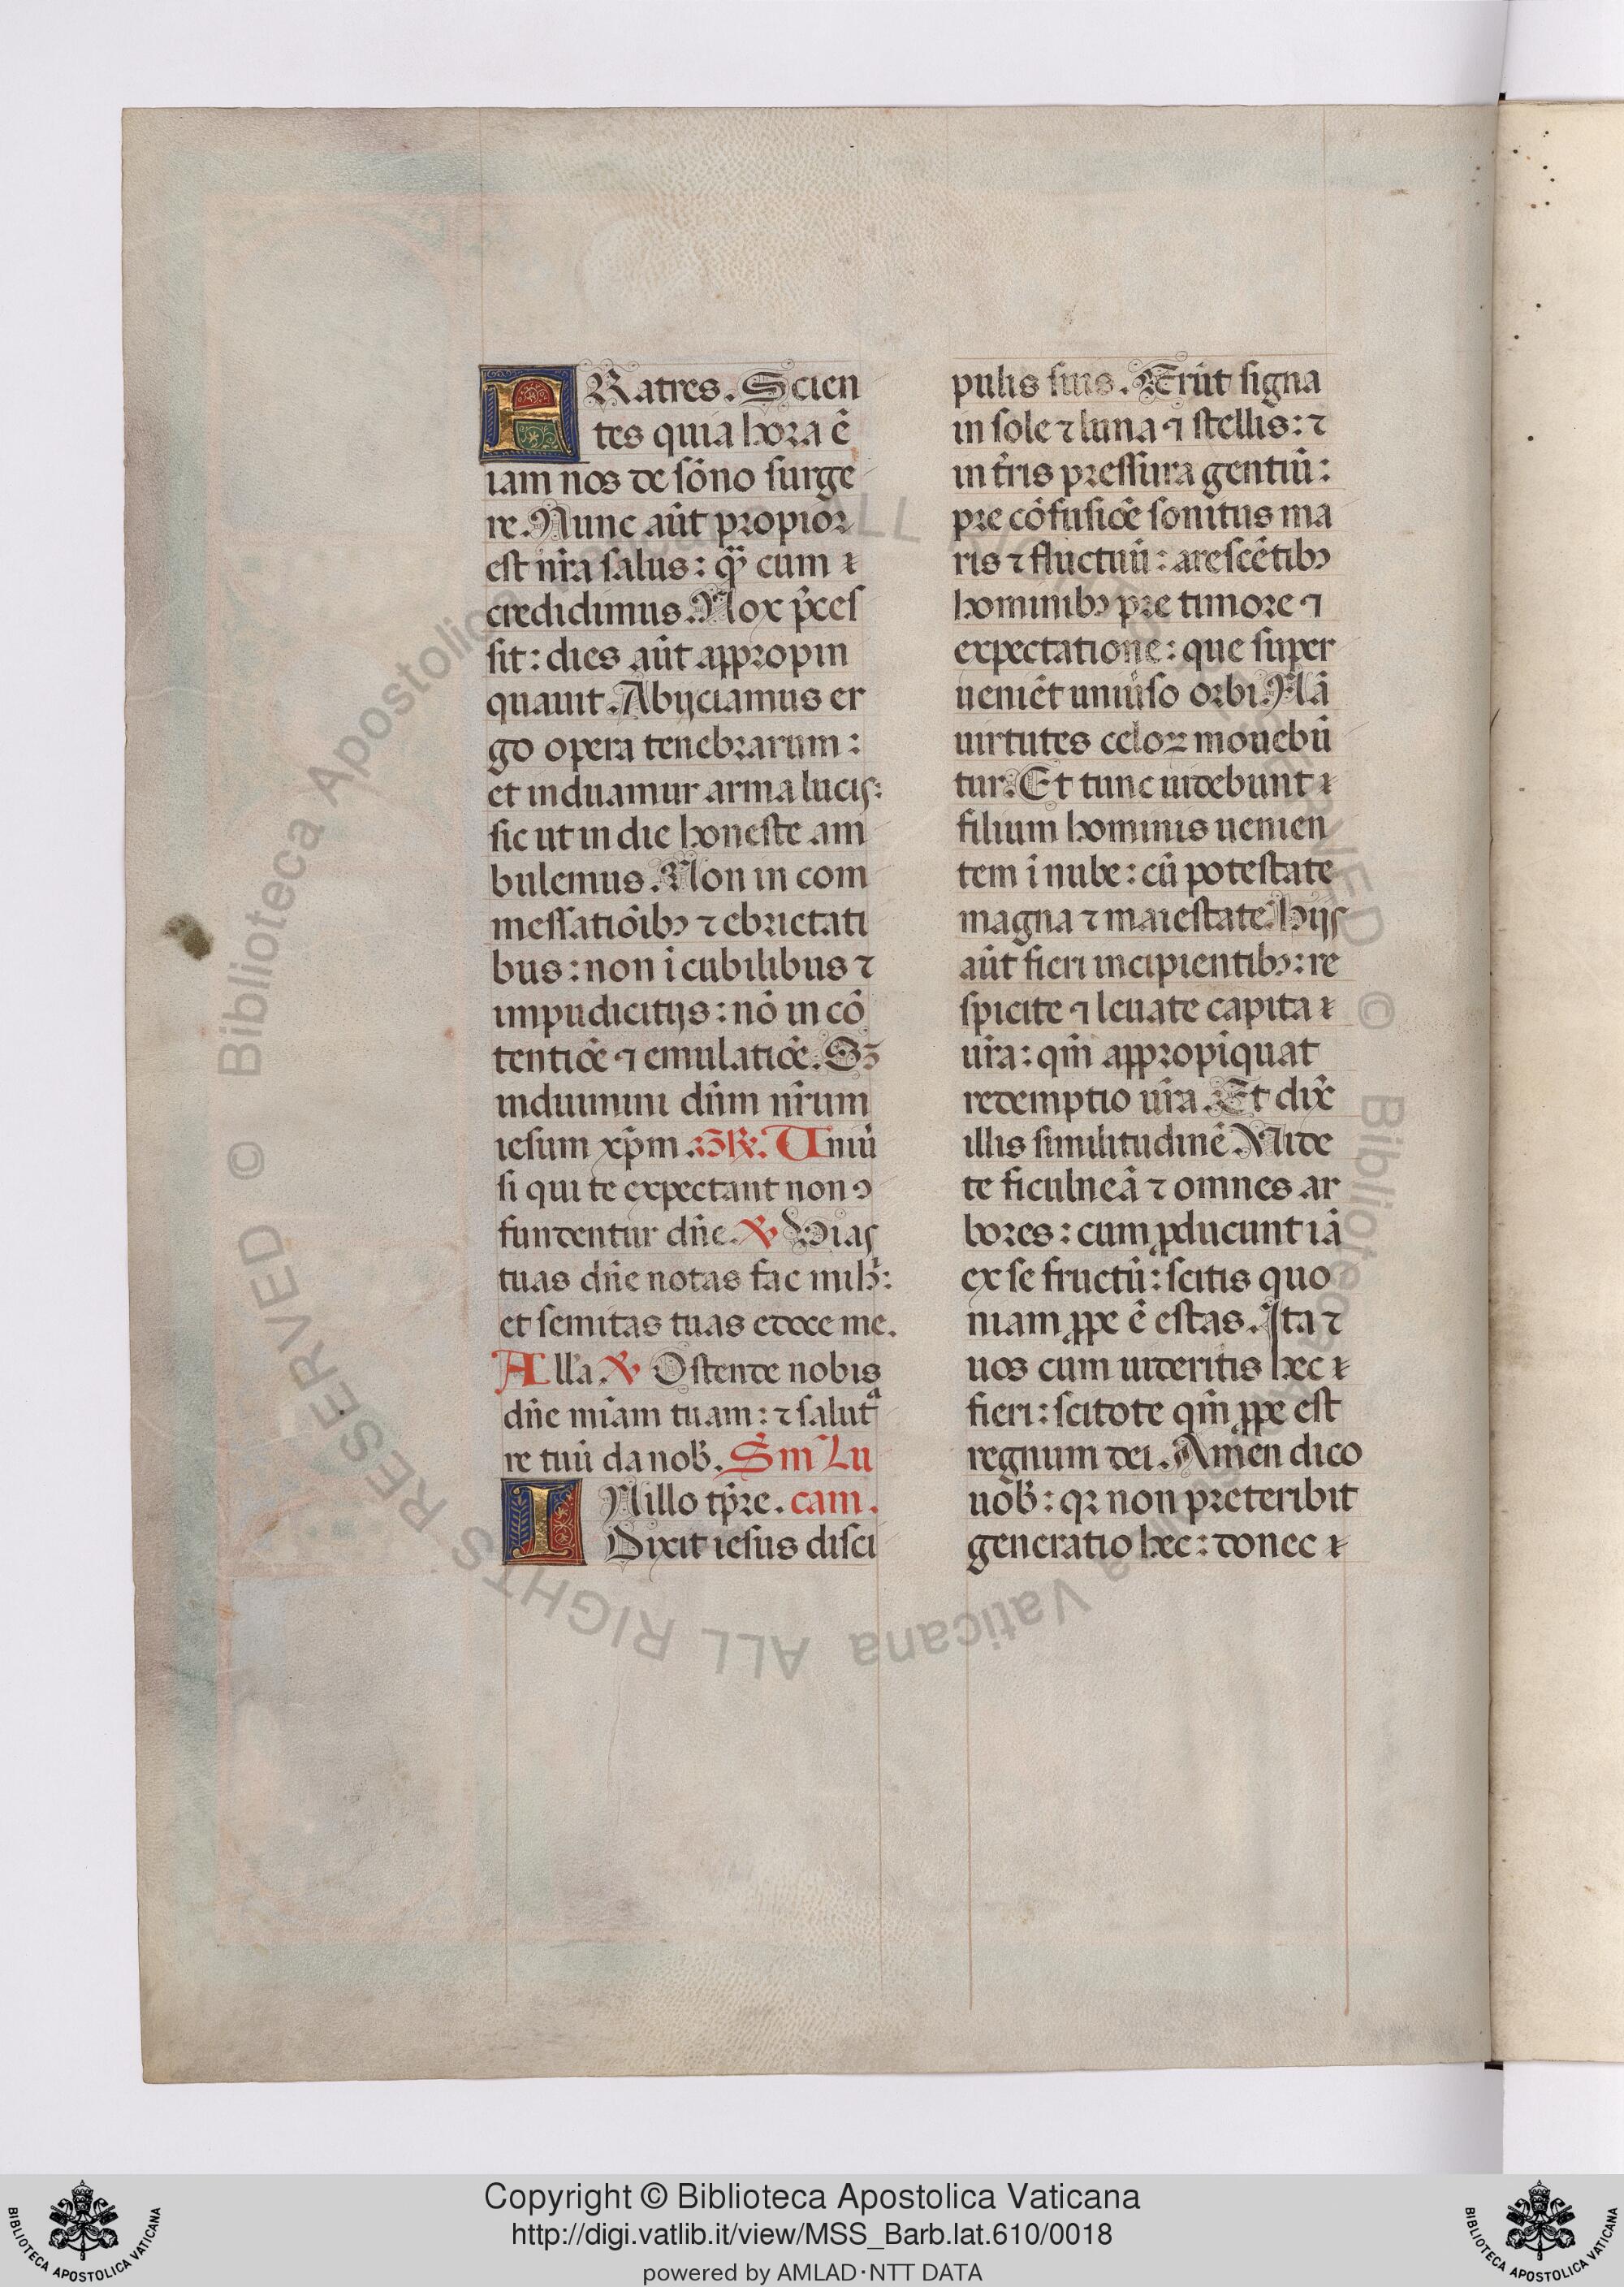 FRatres. Scien
tes quia hora ē
iam nos de sōno surge
re. Nunc aūt propior
est nr̄a salus: qͣ cum
credidimus. Nox p̄ces
sit: dies aūt appropin
quauit. Abijciamus er
go opera tenebrarum:
et induamur arma lucis:
sic ut in die honeste am
bulemus. Non in com
messatiōibꝰ ⁊ ebrietati
bus: non ī cubilibus ⁊
impudicitijs: nō in cō
tentiōe ⁊ emulatiōe. Sꝫ
induimini dn̄m nr̄um
iesum xp̄m. Gr̄. Uniū
si qui te expectant non ↄ
fundentur dn̄e. ℣ Vias
tuas dn̄e notas fac mihi:
et semitas tuas edoce me.
All'a. ℣ Ostende nobis
dn̄e mīam tuam: ⁊ salutᵃ
re tuū da nob̄. Sm̄ Lu
INillo tp̄re. cam.
Dixit iesus disci
pulis suis. Erūt signa
in sole ⁊ luna ⁊ stellis: ⁊
in t̄ris pressura gentiū:
pre cōfusiōe sonitus ma
ris ⁊ fluctuū: arescētibꝰ
hominibꝰ pre timore ⁊
expectatione: que super
ueniēt uniūso orbi. Nā
uirtutes celoꝝ mouebū
tur. Et tunc uidebunt
filium hominis uenien
tem ī nube: cū potestate
magna ⁊ maiestate. Hijs
aūt fieri incipientibꝰ: re
spicite ⁊ leuate capita
ur̄a: qm̄ appropīquat
redemptio ur̄a. Et dix̄
illis similitudinē. Uide
te ficulneā ⁊ omnes ar
bores: cum ꝓducunt iā
ex se fructū: scitis quo
niam ꝓpe ē estas. Ita ⁊
uos cum uideritis hec
fieri: scitote qm̄ ꝓpe est
regnum dei. Amen dico
uob̄: qꝛ non preteribit
generatio hec: donec
Copyright © Biblioteca Apostolica Vaticana
http://digi.vatlib.it/view/MSS_Barb.lat.610/0018
powered by AMLAD·NTT DATA
© Biblioteca Apostolica Vaticana ALL RIGHTS RESERVED
BIBLIOTECA APOSTOLICA VATICANA
BIBLIOTECA APOSTOLICA VATICANA